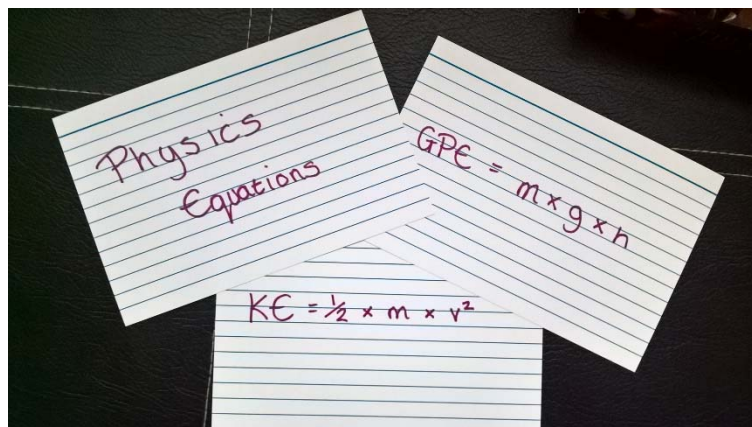 Physics
Equations
GPE = m × g × h
KE = ½ × m × v²